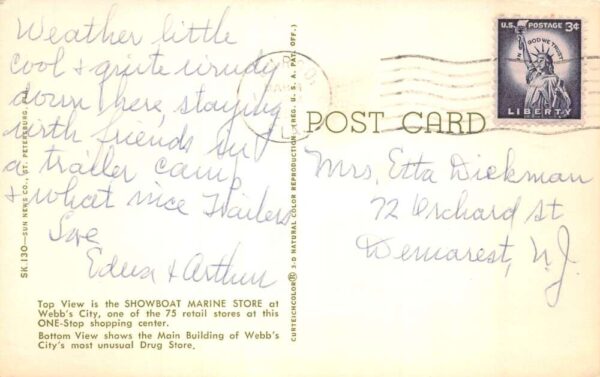 Weather little
cool & quite windy
down here, staying
with friends in
a trailer camp
& what nice Trailers
Love
Edna & Arthur
Top View is the SHOWBOAT MARINE STORE at
Webb's City, one of the 75 retail stores at this
ONE-Stop shopping center.
Bottom View shows the Main Building of Webb's
City's most unusual Drug Store.
SK.130—SUN NEWS CO., ST. PETERSBURG, FLA.
CURTEICHCOLOR® 3-D NATURAL COLOR REPRODUCTION (REG. U. S. A. PAT. OFF.)
POST CARD
U.S. POSTAGE 3¢
IN GOD WE TRUST
LIBERTY
Mrs. Etta Dickman
72 Orchard St
Demarest, N.J.